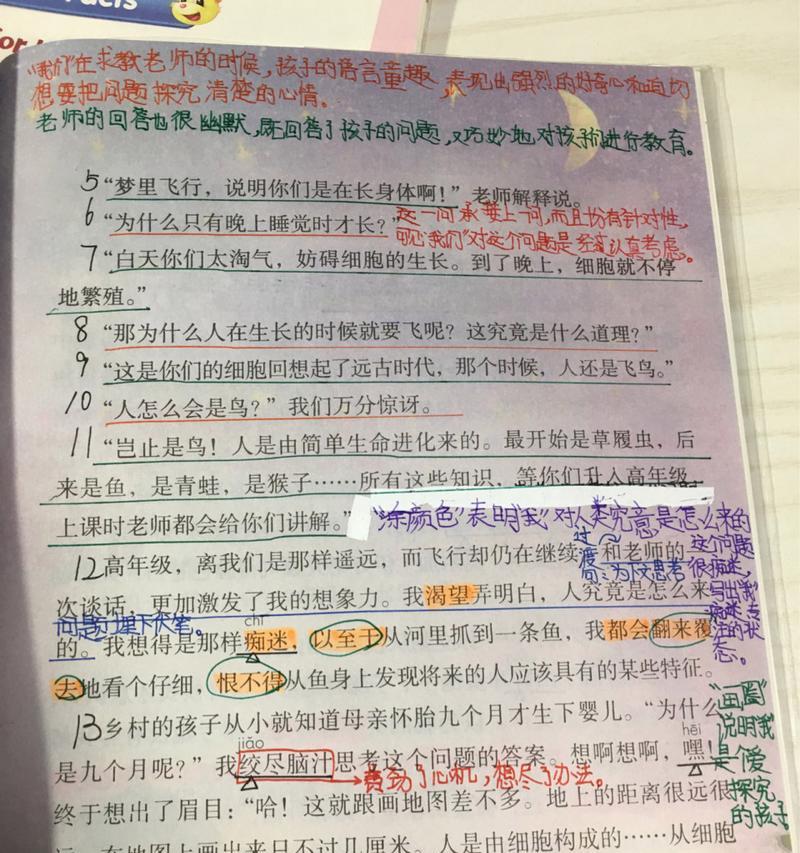 acts
for
“我们”在求教老师的时候,孩子的语言童趣,表现出强烈的好奇心和迫切
想要把问题探究清楚的心情。
老师的回答也很幽默,既回答了孩子的问题,又巧妙地对孩子们进行教育。
5“梦里飞行，说明你们是在长身体啊！”老师解释说。
6“为什么只有晚上睡觉时才长？”
这一问承接上一问,而且极有针对性,
可见“我们”对这个问题是经过认真考虑。
7“白天你们太淘气，妨碍细胞的生长。到了晚上，细胞就不停
地繁殖。”
8“那为什么人在生长的时候就要飞呢？这究竟是什么道理？”
9“这是你们的细胞回想起了远古时代，那个时候，人还是飞鸟。”
10“人怎么会是鸟？”我们万分惊讶。
11“岂止是鸟！人是由简单生命进化来的。最开始是草履虫，后
来是鱼，是青蛙，是猴子……所有这些知识，等你们升入高年级，
上课时老师都会给你们讲解。”
“涂颜色”表明“我”对人类究竟是怎么来的
这个问题
很痴迷,
写出“我”
痴迷
的状
态。
12高年级，离我们是那样遥远，而飞行却仍在继续，和老师的
过渡
句:为下文思考
问题埋下伏笔。
次谈话，更加激发了我的想象力。我渴望弄明白，人究竟是怎么来
chī
的。我想得是那样痴迷，以至于从河里抓到一条鱼，我都会翻来覆
去地看个仔细，恨不得从鱼身上发现将来的人应该具有的某些特征。
13乡村的孩子从小就知道母亲怀胎九个月才生下婴儿。“为什么
jiǎo
hēi
是九个月呢？”我绞尽脑汁思考这个问题的答案。想啊想啊，嘿！
费劲了心机,想尽了办法。
“画圈”
说明“我”
是个爱
探究
的孩子
终于想出了眉目：“哈！这就跟画地图差不多。地上的距离很远很
远，在地图上画出来只不过几厘米。人是由细胞构成的……从细胞